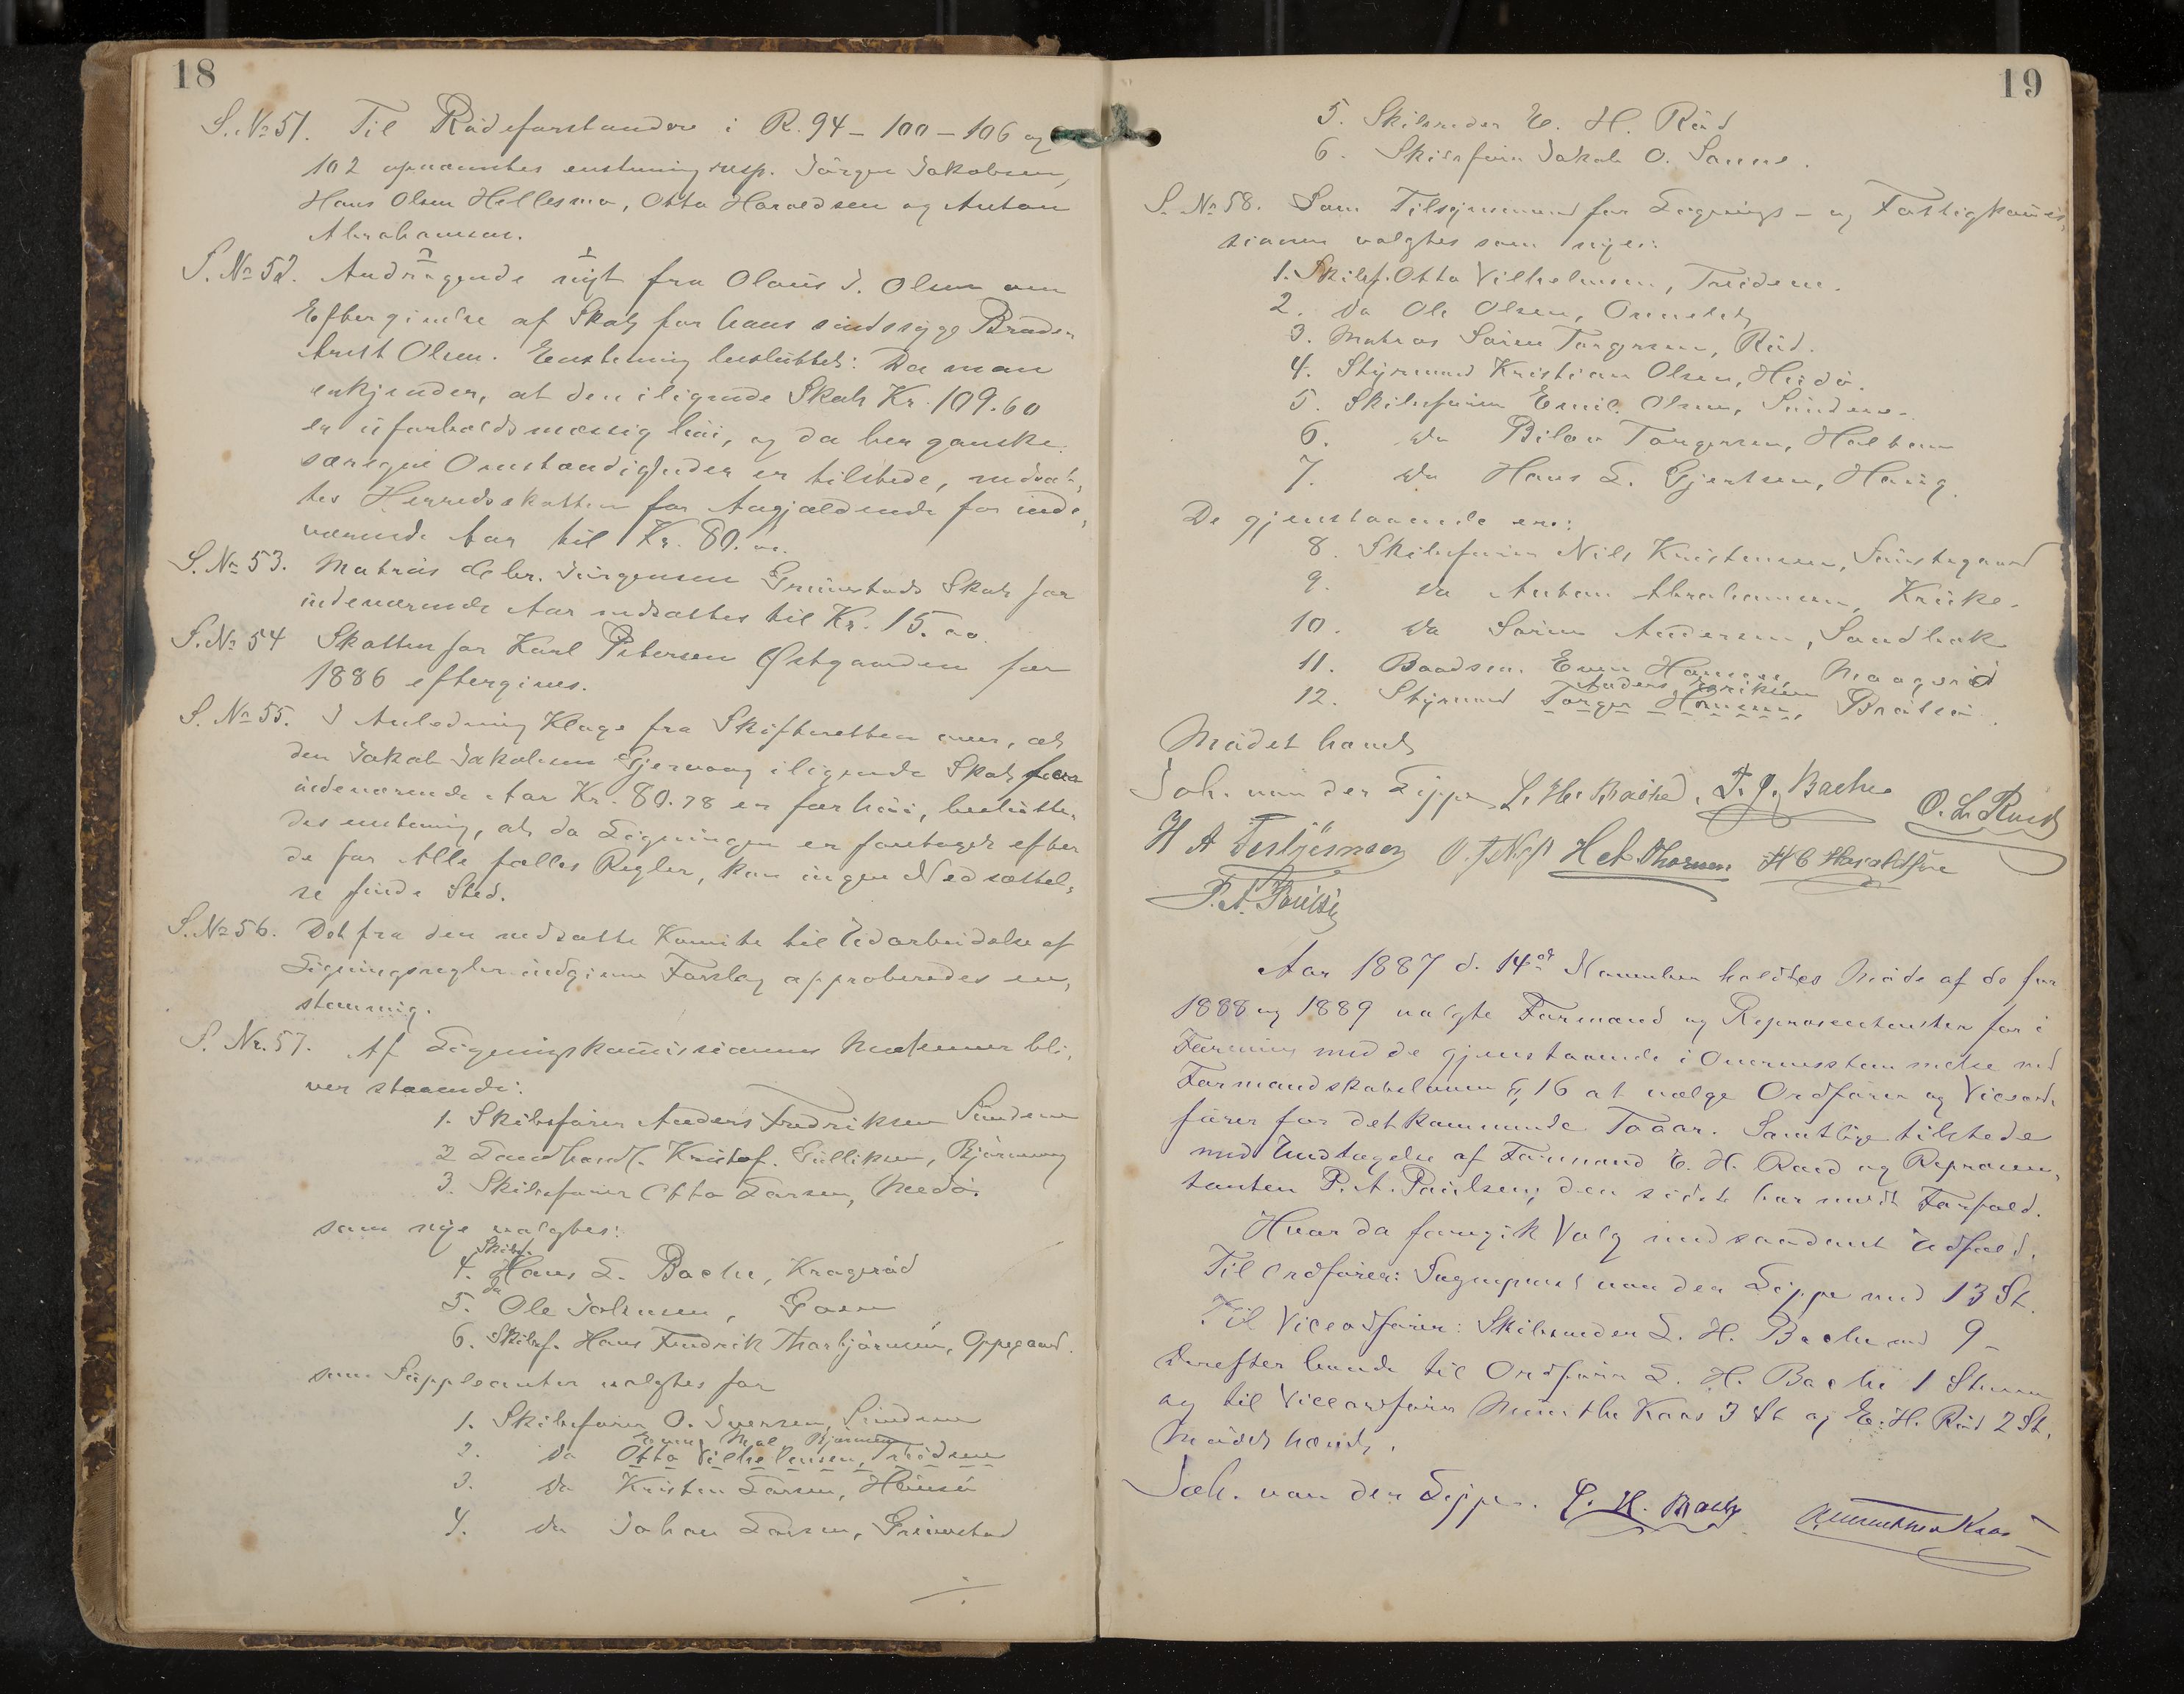 18
S. No 51. Til Rodeforstandere i R. 94 – 100 – 106 og
102 opnævntes enstemmig resp. Jørgen Jakobsen,
Hans Olsen Hellesmo, Otto Haraldsen og Anton
Abrahamsen.
S. No 52. Andragende nyt fra Olaus J. Olsen om
Eftergivelse af Skat for hans sindssyge Broder
Arnt Olsen. Enstemmig besluttet: Da man
erkjender, at den ilignede Skat Kr. 109.60
er uforholdsmæssig høi, og da her ganske
særegne Omstændigheder er tilstede, nedsæt-
tes Herredsskatten for Angjældende for inde-
værende Aar til Kr. 80.00.
S. No 53. Matros Chr. Jørgensen Grimestads Skat for
indeværende Aar nedsættes til Kr. 15.00.
S. No 54 Skatten for Karl Petersen Østgaarden for
1886 eftergives.
S. No 55. I Anledning Klage fra Skifteretten over, at
den Jakob Jakobsen Gjervaag ilignede Skat for
indeværende Aar Kr. 80.78 er for høi, beslutte-
des enstemmig, at da Ligningen er foretaget efter
de for Alle fælles Regler, kan ingen Nedsættel-
se finde Sted.
S. No 56. Det fra den nedsatte Komite til Udarbeidelse af
Ligningsregler indgivne Forslag approberedes en-
stemmig.
S. Nr. 57. Af Ligningskommissionens Medlemmer bli-
ver staaende:
1. Skibsfører Anders Fredriksen Sundene
2 Landhandl. Kristof. Gulliksen, Bjørnevaag
3. Skibsfører Otto Larsen, Medø.
som nye valgtes:
Skibsf.
4. Hans L. Bache, Kragerød
do
5. Ole Johnsen, Gaasø
6. Skibsf. Hans Fredrik Thorbjørnsen, Oppegaard.
som Suppleanter valgtes for
1. Skibsfører O. Iversen, Sundene
Bjørnevaag
2. do Otto Vilhelmsen, Treidene
3. do Kristen Larsen,
4. do Johan Larsen, Grimestad
19
5. Skibsreder E. H. Röd
6. Skibsfører Jakob O. Sanne.
S. No 58. Som Tilsynsmænd for Lignings- og Fattigkommis-
sionen valgtes som nye:
1. Skibsf. Otto Vilhelmsen, Treidene.
2. do Ole Olsen, Ormelet
3. Matros Søren Torgersen, Röd.
4. Styrmand Kristian Olsen, Hvidø.
5. Skibsfører Emil Olsen, Sundene.
6. do Torgersen, Holtan
7. do Hans L. Gjertsen, Haug.
De gjenstaaende er:
8. Skibsfører Nils Kristensen,
9. do Anton Abrahamsen, Kruke.
10. do Søren Andersen, Sandbæk
11. Baadsm. Even Hansen, Maagerø
Anders Eriksen
12. Styrmand Torger Hansen, Bratsø.
Mødet hævet
Joh. van der Lippe L. H. Bache. F. J. Bache O. L. Röed
H A Torbjørnsen H A Thorsen H C Haraldsen
P. A. Poulsen
Aar 1887 d. 14de November holdtes Møde af de for
1888 og 1889 valgte Formænd og Repræsentanter for i
Forening med de gjenstaaende i Overensstemmelse med
Formandskabsloven § 16 at vælge Ordfører og Viceord-
fører for det kommende Toaar. Samtlige tilstede
med Undtagelse af Formand E. H. Röed og Repræsen-
tanten P. A. Paulsen, den sidste har mældt Forfald.
Hvor da foregik Valg med saadant Udfald.
Til Ordfører: Sogneprest van der Lippe med 13 St.
Til Viceordfører: Skibsreder L. H. Bache med 9 –
Derefter havde til Ordfører L. H. Bache 1 Stemme
og til Viceordfører Munthe Kaas 3 St og E. H. Röd 2 St.
Mødet hævet.
Joh. van der Lippe. L. H. Bache Munthe Kaas